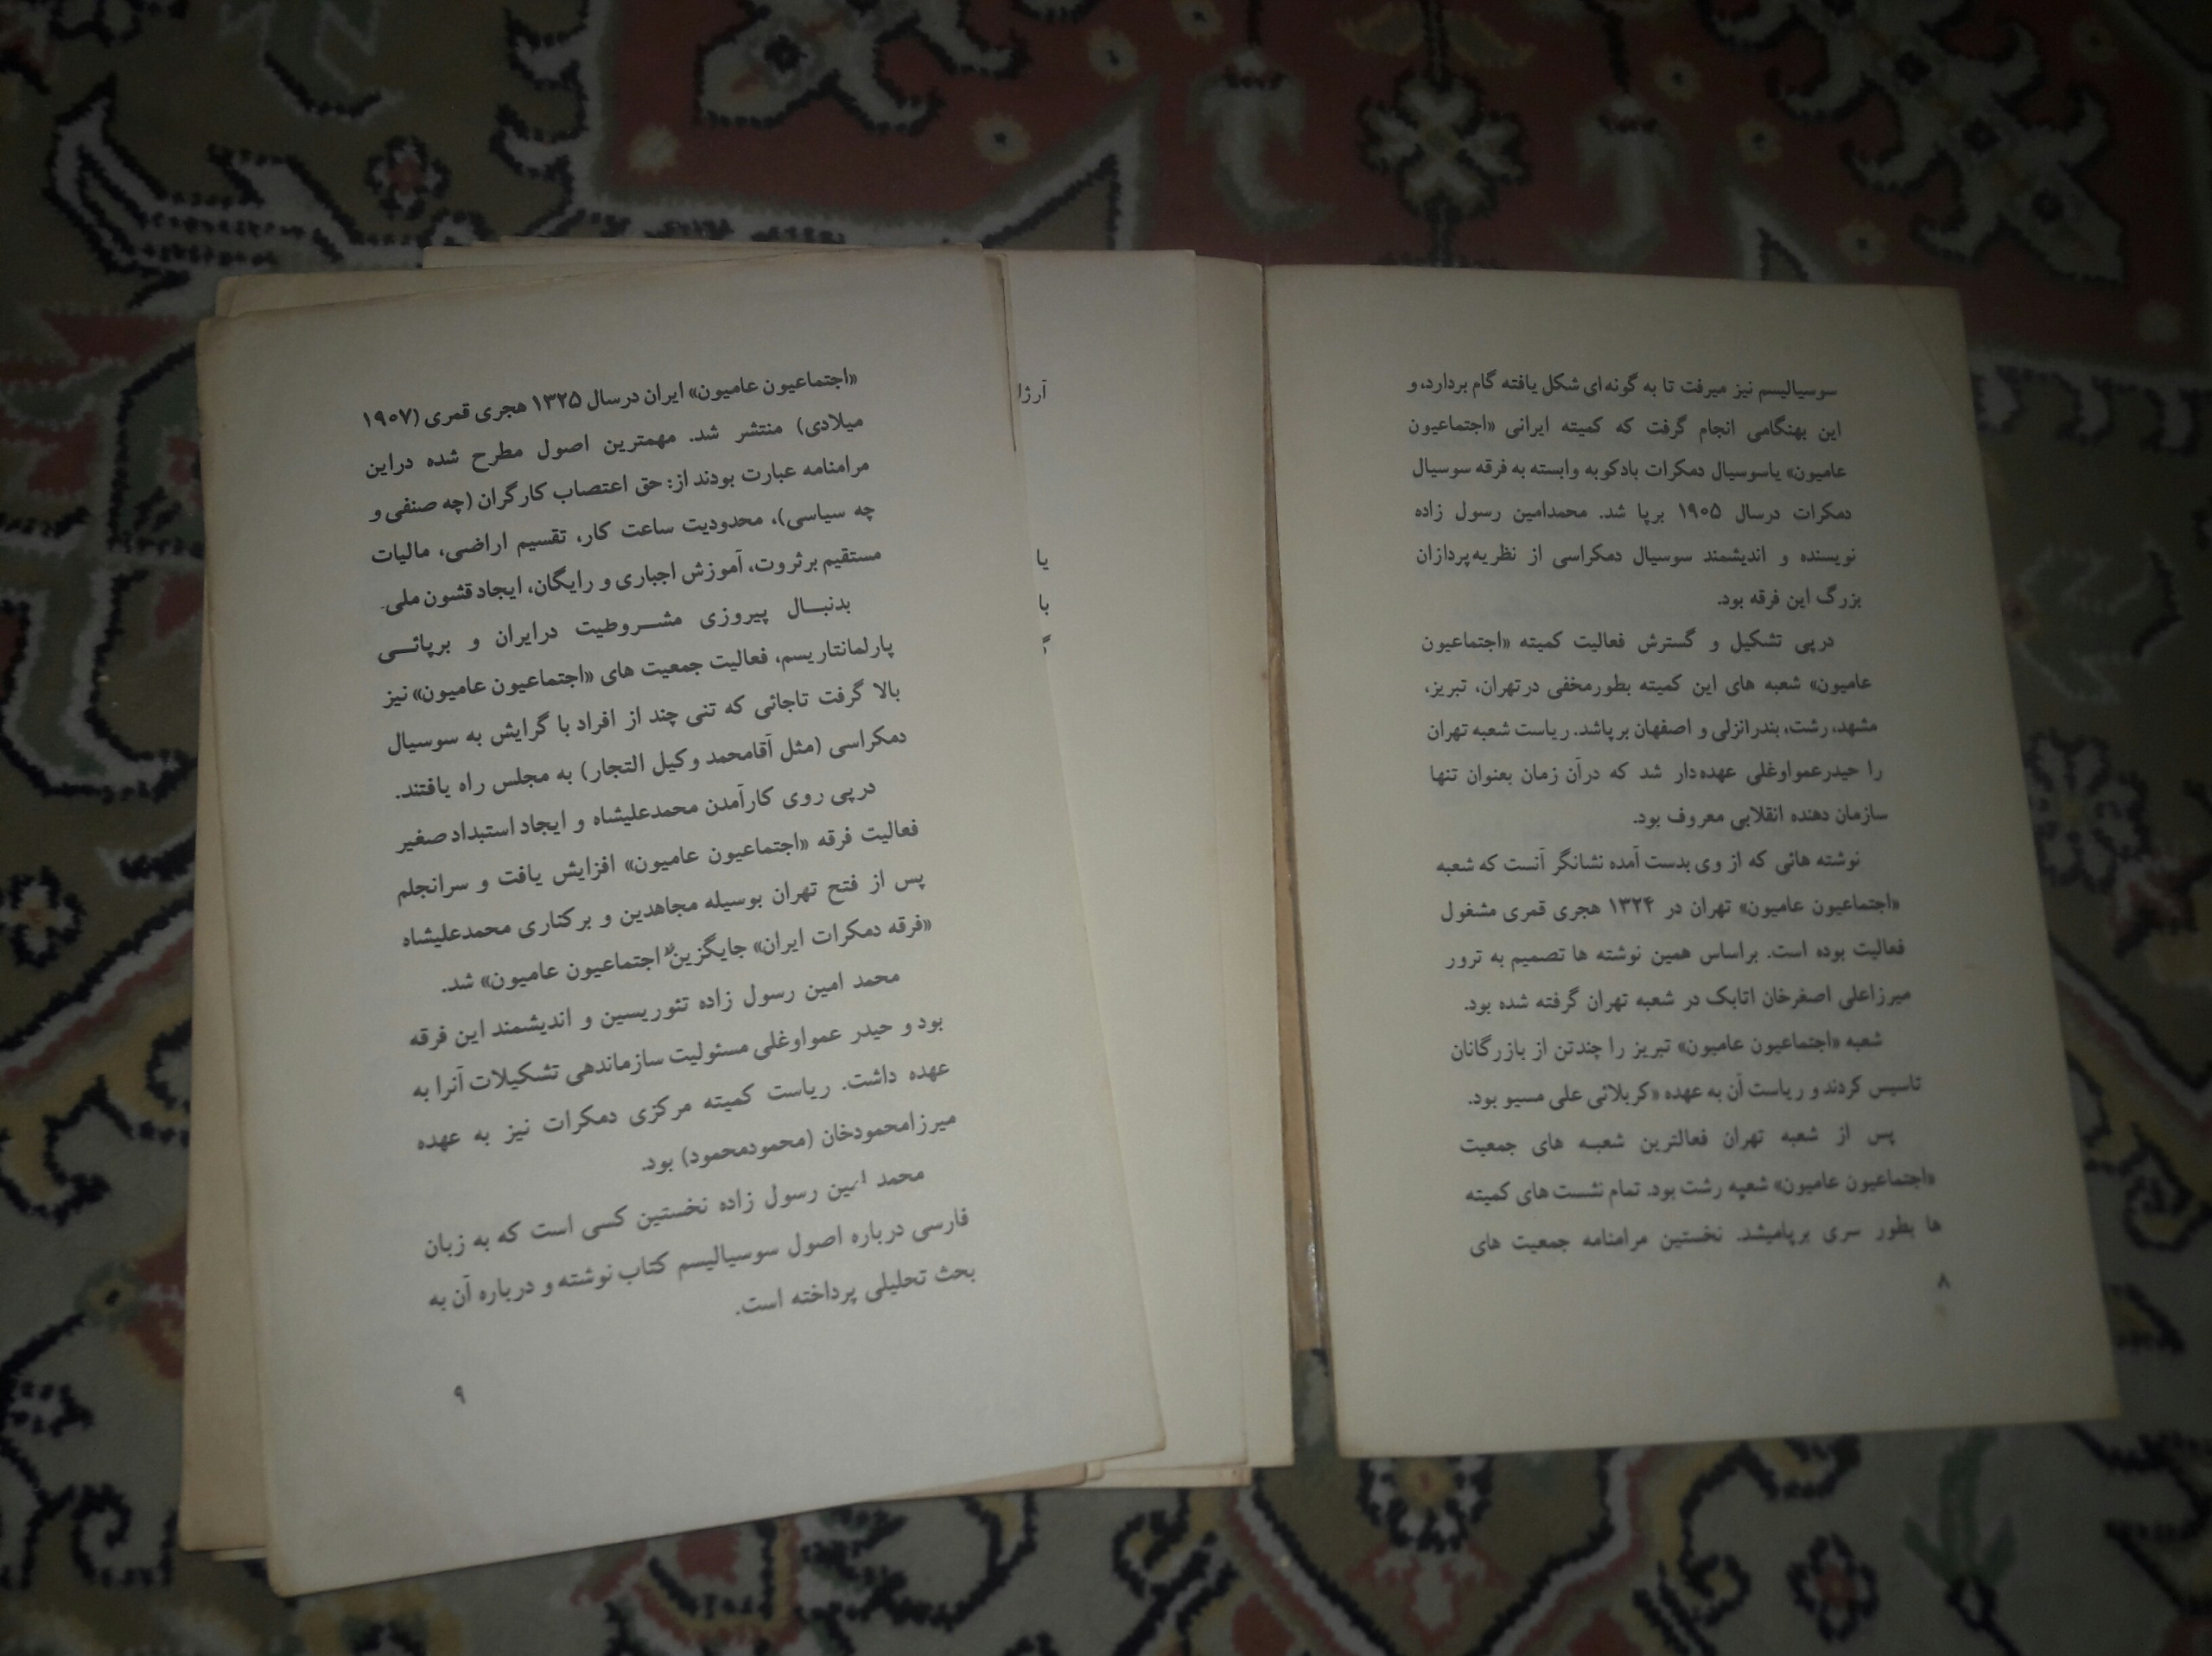 سوسیالیسم نیز میرفت تا به گونه‌ای شکل یافته گام بردارد، و
این بهنگامی انجام گرفت که کمیته ایرانی «اجتماعیون
عامیون» یاسوسیال دمکرات بادکوبه وابسته به فرقه سوسیال
دمکرات درسال ۱۹۰۵ برپا شد. محمدامین رسول زاده
نویسنده و اندیشمند سوسیال دمکراسی از نظریه‌پردازان
بزرگ این فرقه بود.
درپی تشکیل و گسترش فعالیت کمیته «اجتماعیون
عامیون» شعبه های این کمیته بطورمخفی درتهران، تبریز،
مشهد، رشت، بندرانزلی و اصفهان برپاشد. ریاست شعبه تهران
را حیدرعمواوغلی عهده‌دار شد که درآن زمان بعنوان تنها
سازمان دهنده انقلابی معروف بود.
نوشته هائی که از وی بدست آمده نشانگر آنست که شعبه
«اجتماعیون عامیون» تهران در ۱۳۲۴ هجری قمری مشغول
فعالیت بوده است. براساس همین نوشته ها تصمیم به ترور
میرزاعلی اصغرخان اتابک در شعبه تهران گرفته شده بود.
شعبه «اجتماعیون عامیون» تبریز را چندتن از بازرگانان
تاسیس کردند و ریاست آن به عهده «کربلائی علی مسیو بود.
پس از شعبه تهران فعالترین شعبه های جمعیت
«اجتماعیون عامیون» شعبه رشت بود. تمام نشست های کمیته
ها بطور سری برپامیشد. نخستین مرامنامه جمعیت های
۸
آرژا
یا
با
«اجتماعیون عامیون» ایران درسال ۱۳۲۵ هجری قمری (۱۹۰۷
میلادی) منتشر شد. مهمترین اصول مطرح شده دراین
مرامنامه عبارت بودند از: حق اعتصاب کارگران (چه صنفی و
چه سیاسی)، محدودیت ساعت کار، تقسیم اراضی، مالیات
مستقیم برثروت، آموزش اجباری و رایگان، ایجاد قشون ملی.
بدنبـال پیروزی مشـروطیت درایران و برپائـی
پارلمانتاریسم، فعالیت جمعیت های «اجتماعیون عامیون» نیز
بالا گرفت تاجائی که تنی چند از افراد با گرایش به سوسیال
دمکراسی (مثل آقامحمد وکیل التجار) به مجلس راه یافتند.
درپی روی کارآمدن محمدعلیشاه و ایجاد استبداد صغیر
فعالیت فرقه «اجتماعیون عامیون» افزایش یافت و سرانجلم
پس از فتح تهران بوسیله مجاهدین و برکناری محمدعلیشاه
«فرقه دمکرات ایران» جایگزین «اجتماعیون عامیون» شد.
محمد امین رسول زاده تئوریسین و اندیشمند این فرقه
بود و حیدر عمواوغلی مسئولیت سازماندهی تشکیلات آنرا به
عهده داشت. ریاست کمیته مرکزی دمکرات نیز به عهده
میرزامحمودخان (محمودمحمود) بود.
محمد امین رسول زاده نخستین کسی است که به زبان
فارسی درباره اصول سوسیالیسم کتاب نوشته و درباره آن به
بحث تحلیلی پرداخته است.
۹